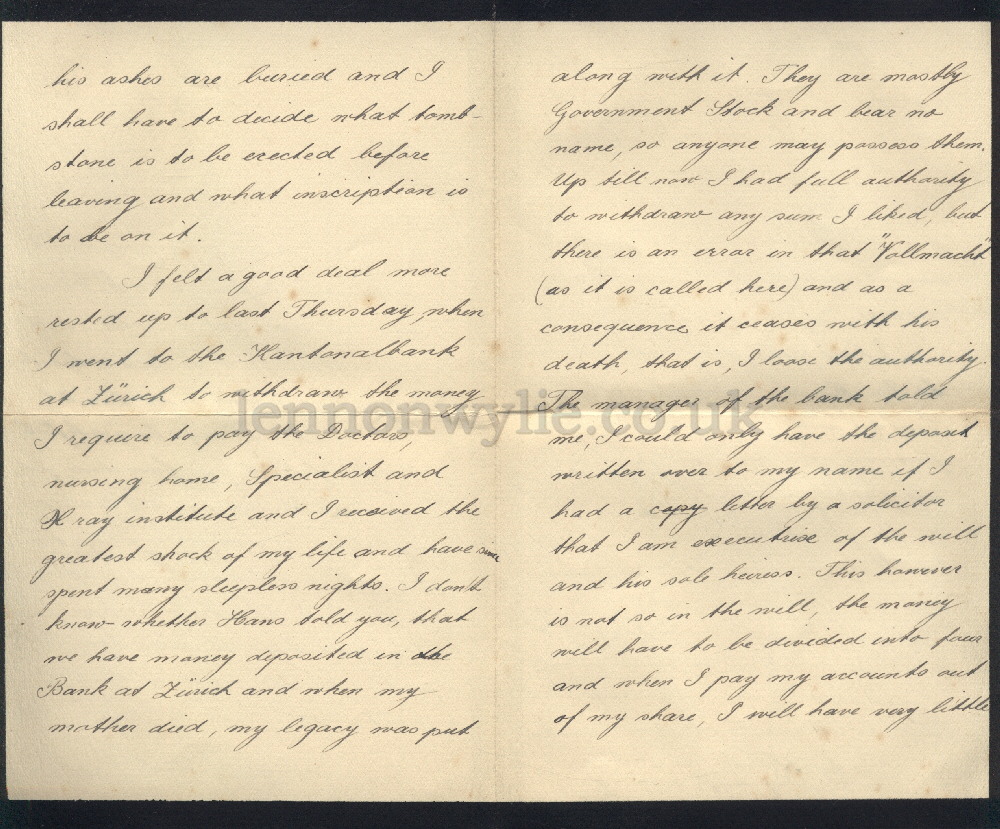 his ashes are buried and I
shall have to decide what tomb-
stone is to be erected before
leaving and what inscription is
to be on it.
I felt a good deal more
rested up to last Thursday, when
I went to the Kantonalbank
at Zürich to withdraw the money
I require to pay the Doctors,
nursing home, Specialist and
X ray institute and I received the
greatest shock of my life and have since
spent many sleepless nights. I don't
know whether Hans told you, that
we have money deposited in the
Bank at Zürich and when my
mother died, my legacy was put
along with it. They are mostly
Government Stock and bear no
name, so anyone may possess them.
Up till now I had full authority
to withdraw any sum I liked, but
there is an error in that "Vollmacht"
(as it is called here) and as a
consequence it ceases with his
death, that is, I loose the authority.
The manager of the bank told
me, I could only have the deposit
written over to my name if I
had a copy letter by a solicitor
that I am executrise of the will
and his sole heiress. This however
is not so in the will, the money
will have to be divided into four
and when I pay my accounts out
of my share, I will have very little
lennonwylie.co.uk